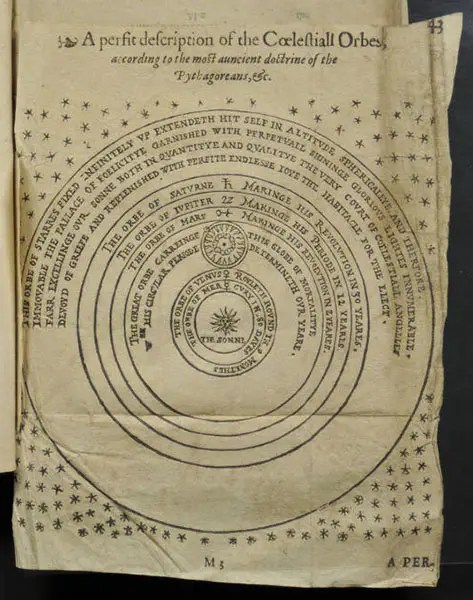 43
A perfit description of the Cœlestiall Orbes,
according to the most auncient doctrine of the
Pythagoreans, &c.
THIS ORBE OF STARRES FIXED INFINITELY VP EXTENDETH HIT SELF IN ALTITVDE SPHERICALLYE, AND THEREFORE
IMMOVABLE THE PALLACE OF FOELICITYE GARNISHED WITH PERPETVALL SHININGE GLORIOVS LIGHTES INNVMERABLE.
FARR EXCELLINGE OVR SONNE BOTH IN QVANTITYE AND QVALITYE THE VERY COVRT OF COELESTIALL ANGELLES
DEVOYD OF GREEFE AND REPLENISHED WITH PERFITE ENDLESSE IOYE THE HABITACLE FOR THE ELECT.
THE ORBE OF SATVRNE ♄ MAKINGE HIS REVOLVTION IN 30 YEARES.
THE ORBE OF IVPITER ♃ MAKINGE HIS PERIODE IN 12 YEARES
THE ORBE OF MARS ♂ MAKINGE HIS REVOLVTION IN 2 YEARES.
THE GREAT ORBE CARREINGE THIS GLOBE OF MORTALITYE
HIS CIRCVLAR PERIODE DETERMINETH OVR YEARE.
THE ORBE OF VENVS ♀ ROVLETH ROVND TIS 9 MONETHES
THE ORBE OF MERCVRY IN 80 DAYES
THE SONNE
M 3
A PER-